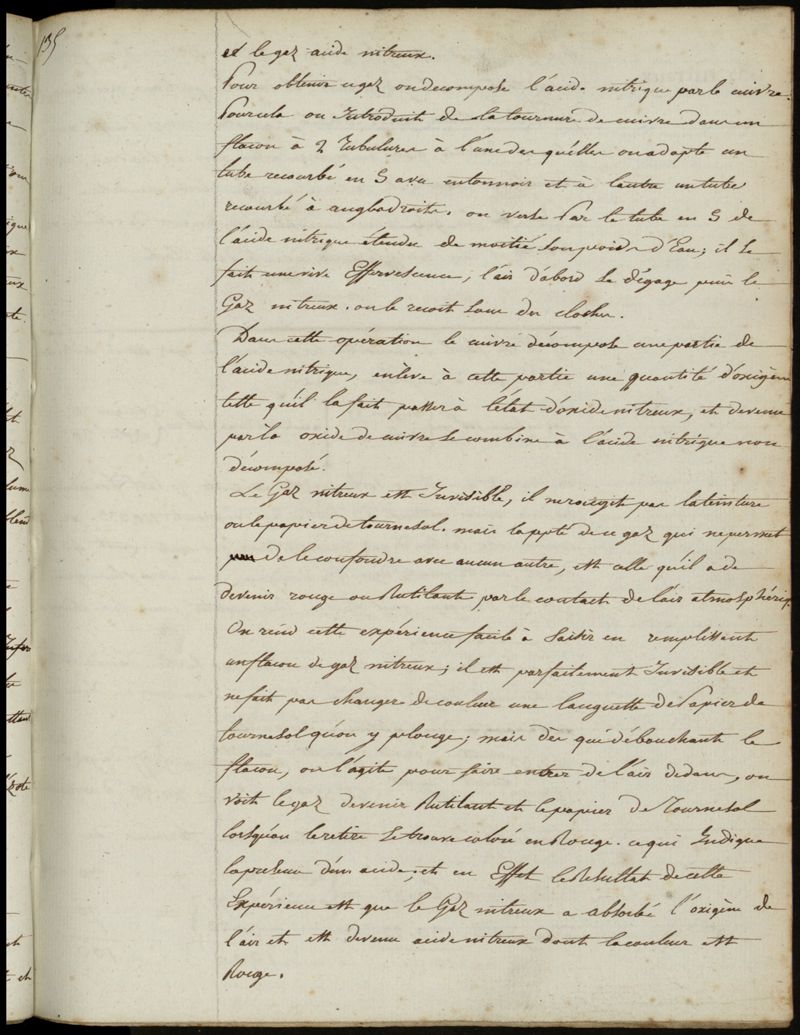 135
et le gaz acide nitreux.
Pour obtenir ce gaz on decompose l'acide nitrique par le cuivre.
Pour cela on Introduit de la tournure de cuivre dans un
flacon à 2 Tubulures à l'une desquelles on adapte un
tube recourbé en S avec entonnoir et à lautre un tube
recourbé à angle droite. on verse Par le tube en S de
l'acide nitrique étendu de moitié son poids d'Eau; il se
fait une vive Effervescence, l'air d'abord se dégage puis le
Gaz nitreux. on le recoit sous des cloches.
Dans cette opération le cuivre décompose une partie de
l'acide nitrique, enleve à cette partie une quantité d'oxigène
telle quil la fait passer à létat d'oxide nitreux, et devenu
par là oxide de cuivre se combine à l'acide nitrique non
décomposé.
Le Gaz nitreux est Invisible, il ne rougit pas la teinture
ou le papier de tournesol. mais la ppté de ce gaz qui ne permet
de le confondre avec aucun autre, est celle qu'il a de
devenir rouge ou Rutilant par le contact de l'air atmosphériq.
On rend cette expérience facile à saisir en remplissant
un flacon de gaz nitreux; il est parfaitement Invisible et
ne fait pas changer de couleur une languette de Papier de
tournesol qu'on y plonge; mais dès qu'e débouchant le
flacon, on l'agite pour faire entrer de l'air dedans, on
voit le gaz devenir Rutilant et le papier de Tournesol
lorsqu'on le retire se trouve coloré en Rouge. ce qui Indique
la presence d'un acide, et en Effet le Resultat de cette
Expérience est que le Gaz nitreux a absorbé l'oxigène de
l'air et est devenu acide nitreux dont la couleur est
Rouge.